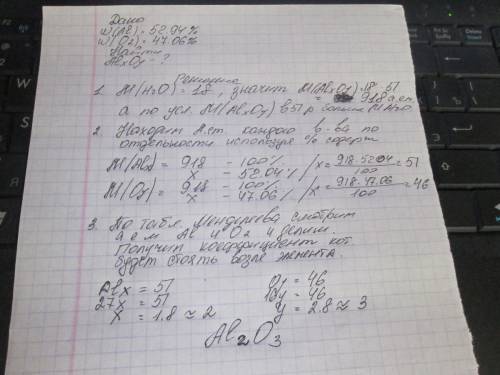 Дано
W(Al) = 52.94%
W(O2) = 47.06%
Найти
AlxOy - ?
Решение
1. M(H2O) = 18, значит M(AlxOy) = 18·51
= 918 а.е.м.
а по усл. M(AlxOy) в 51 р. больше M H2O
2. Находим M каждого в-ва по
отдельности используя % содерж
M(Alx) = 918 - 100% / x = 918·52.94 / 100 = 51
x - 52.04%
M(Oy) = 918 - 100% / x = 918·47.06 / 100 = 46
x - 47.06%
3. По табл. Менделеева смотрим
а.е.м Al и O2 и делим.
Получим коэффициент кот.
будет стоять возле элемента.
Alx = 51
27x = 51
x = 1.8 ≈ 2
Oy = 46
16y = 46
y = 2.8 ≈ 3
Al2O3